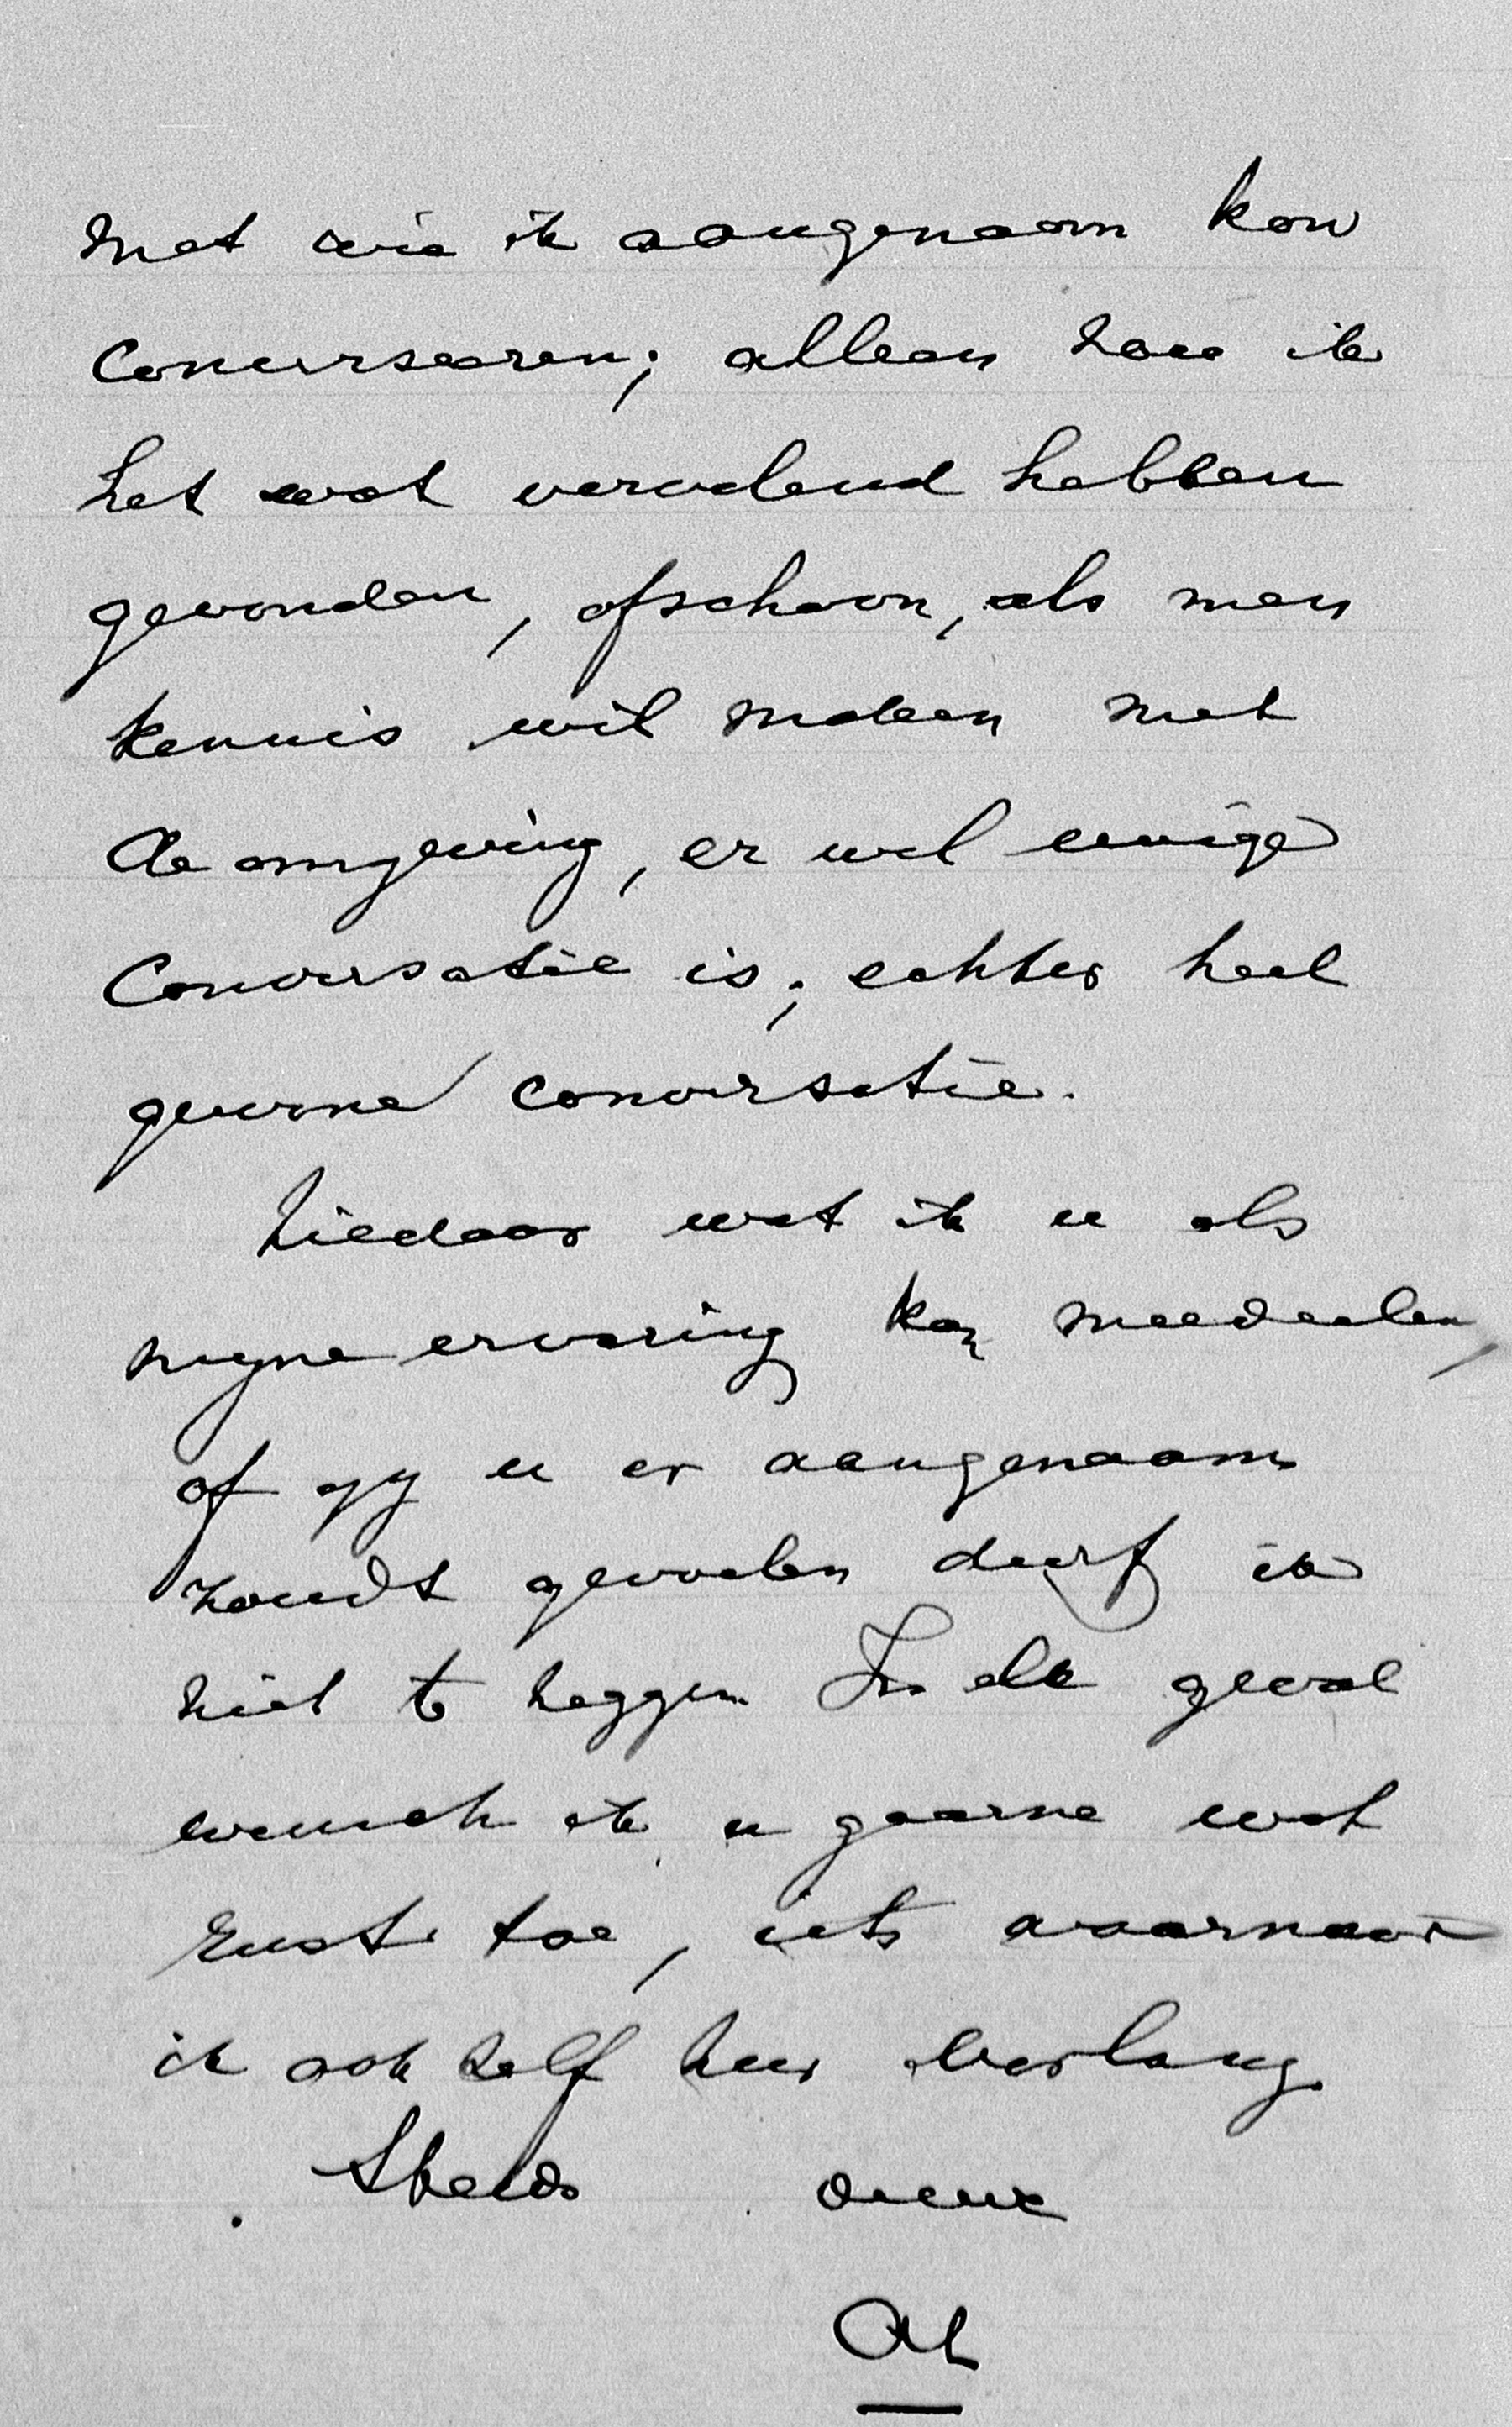 met wie ik aangenaam kon
converseeren; alleen zou ik
het wat vervelend hebben
gevonden, ofschoon, als men
kennis wil maken met
de omgeving, er wel eenige
conversatie is; echter heel
gewone conversatie.
Ziedaar wat ik u als
mijne ervaring kan meedeelen,
of gij u er aangenaam
zoudt gevoelen durf ik
niet te zeggen In elk geval
wensch ik u gaarne wat
rust toe, iets waarnaar
ik ook zelf zeer verlang.
Steeds